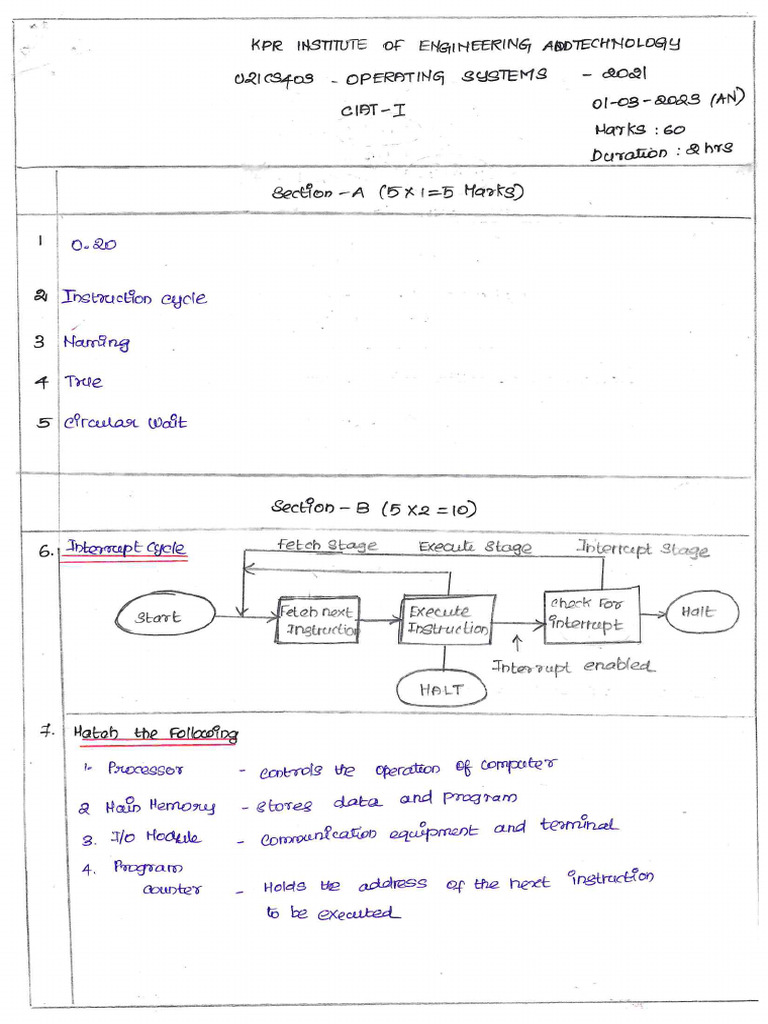 KPR INSTITUTE OF ENGINEERING AND TECHNOLOGY
U21CS403 - OPERATING SYSTEMS - 2021
CIAT-I
01-03-2023 (AN)
Marks : 60
Duration : 2 hrs
Section - A (5 X 1 = 5 Marks)
1 0.20
2 Instruction cycle
3 Naming
4 True
5 Circular wait
Section - B (5 X 2 = 10)
6. Interrupt Cycle
Fetch Stage Execute Stage Interrupt Stage
Start
Fetch next
Instruction
Execute
Instruction
Check For
interrupt
Halt
Interrupt enabled
HALT
7. Match the Following
1. Processor - Controls the operation of computer
2 Main Memory - Stores data and program
3. I/O Module - Communication equipment and terminal
4. Program
counter - Holds the address of the next instruction
to be executed